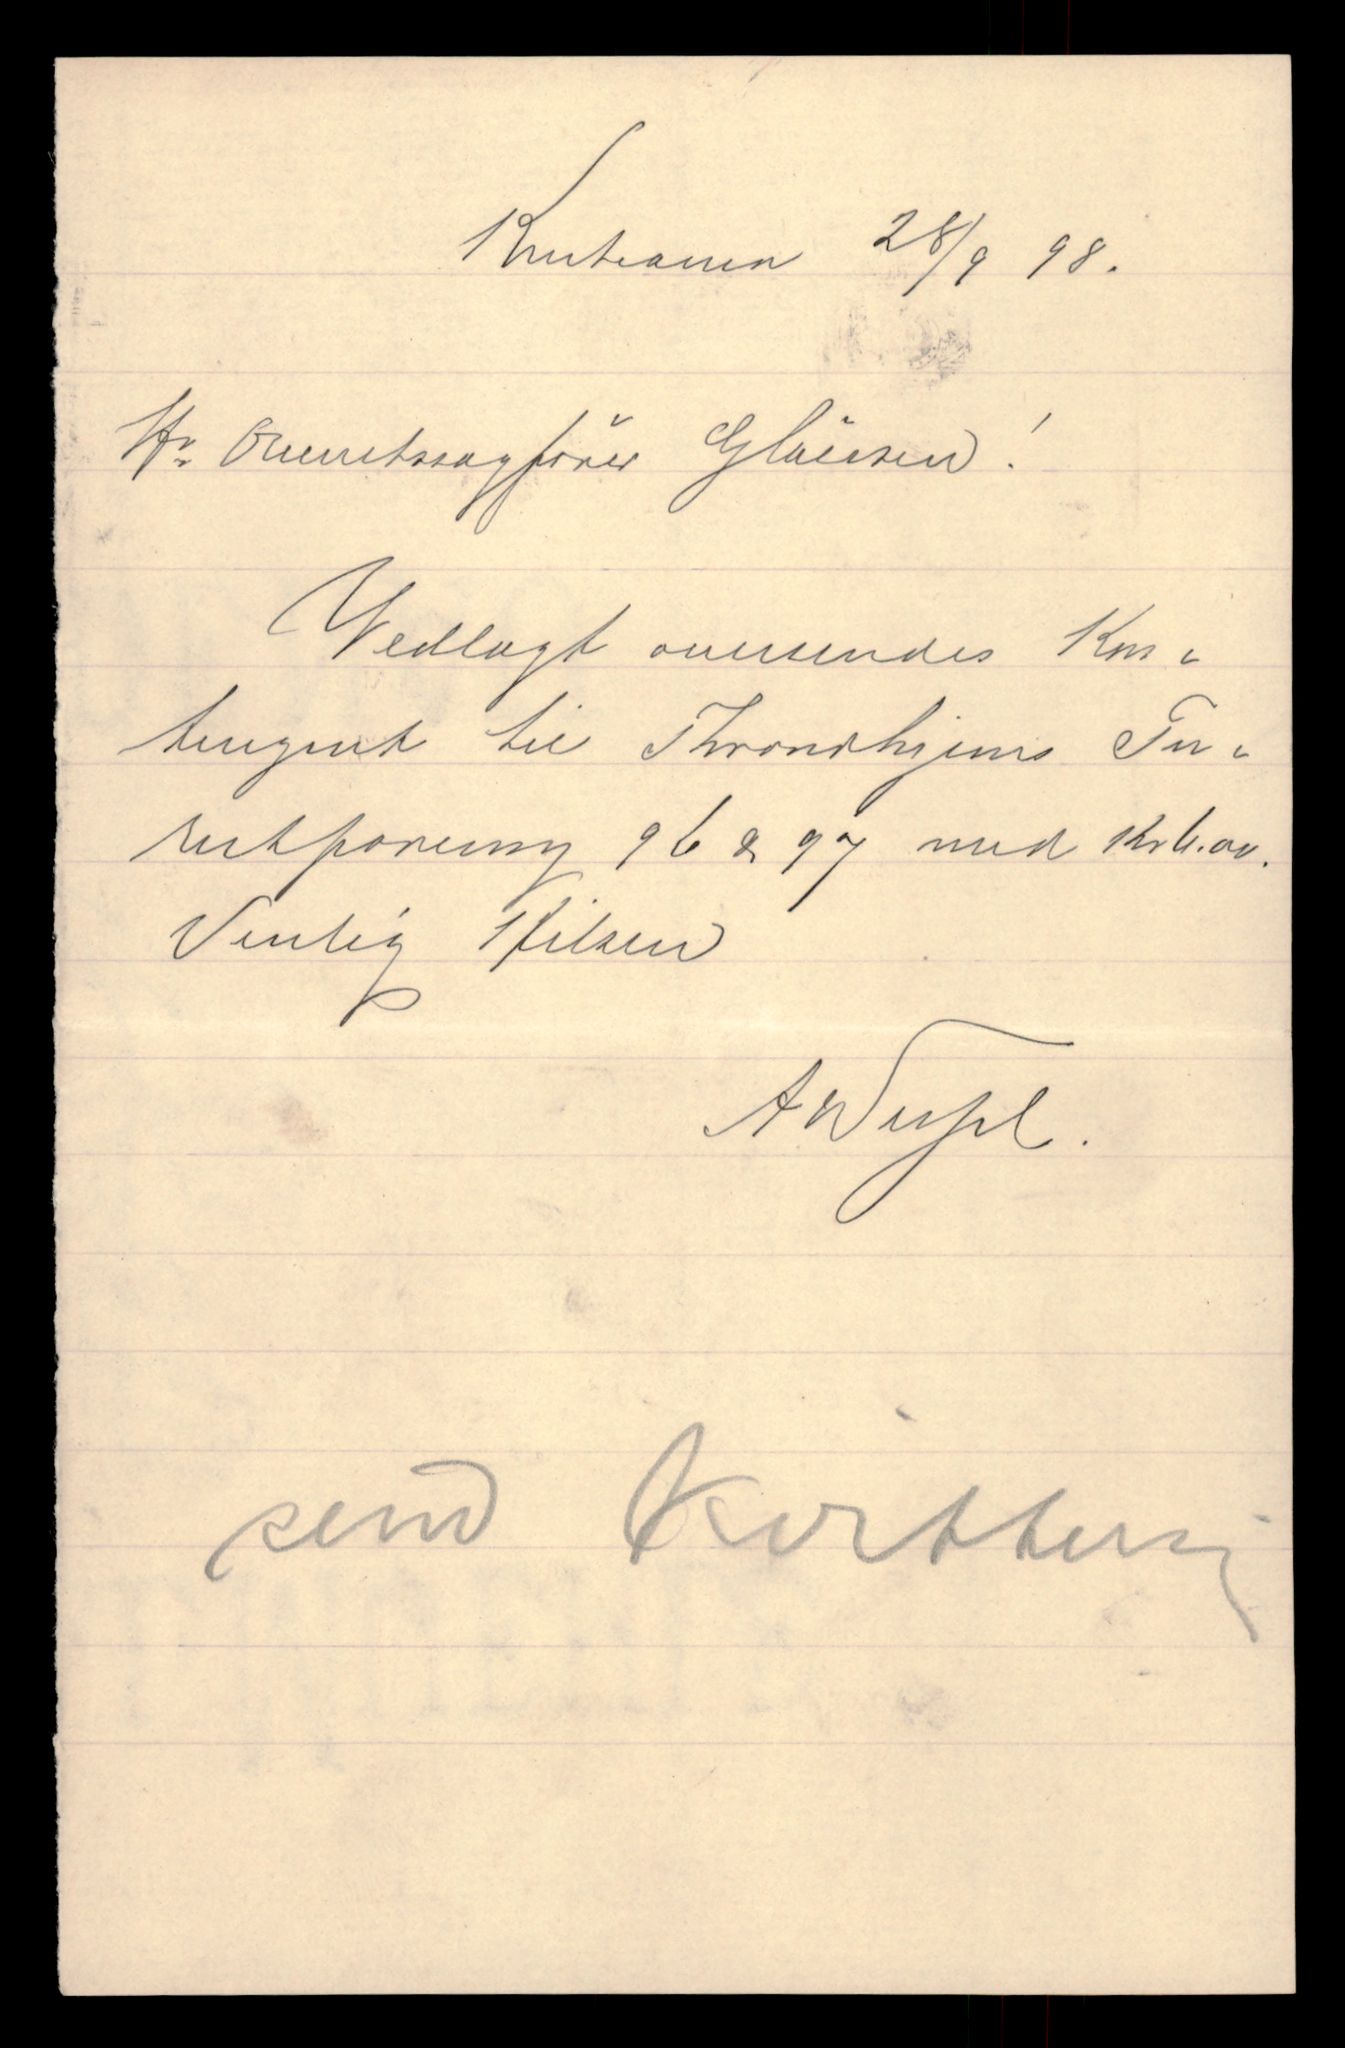 Kristiania 28/9 98.
Hr. Overretssagfører Gløersen!
Vedlagt oversendes Kon-
tingent til Throndhjems Tu-
ristforening 96 & 97 med Kr 6.00.
Venlig Hilsen
A Wessel.
send Kvittering